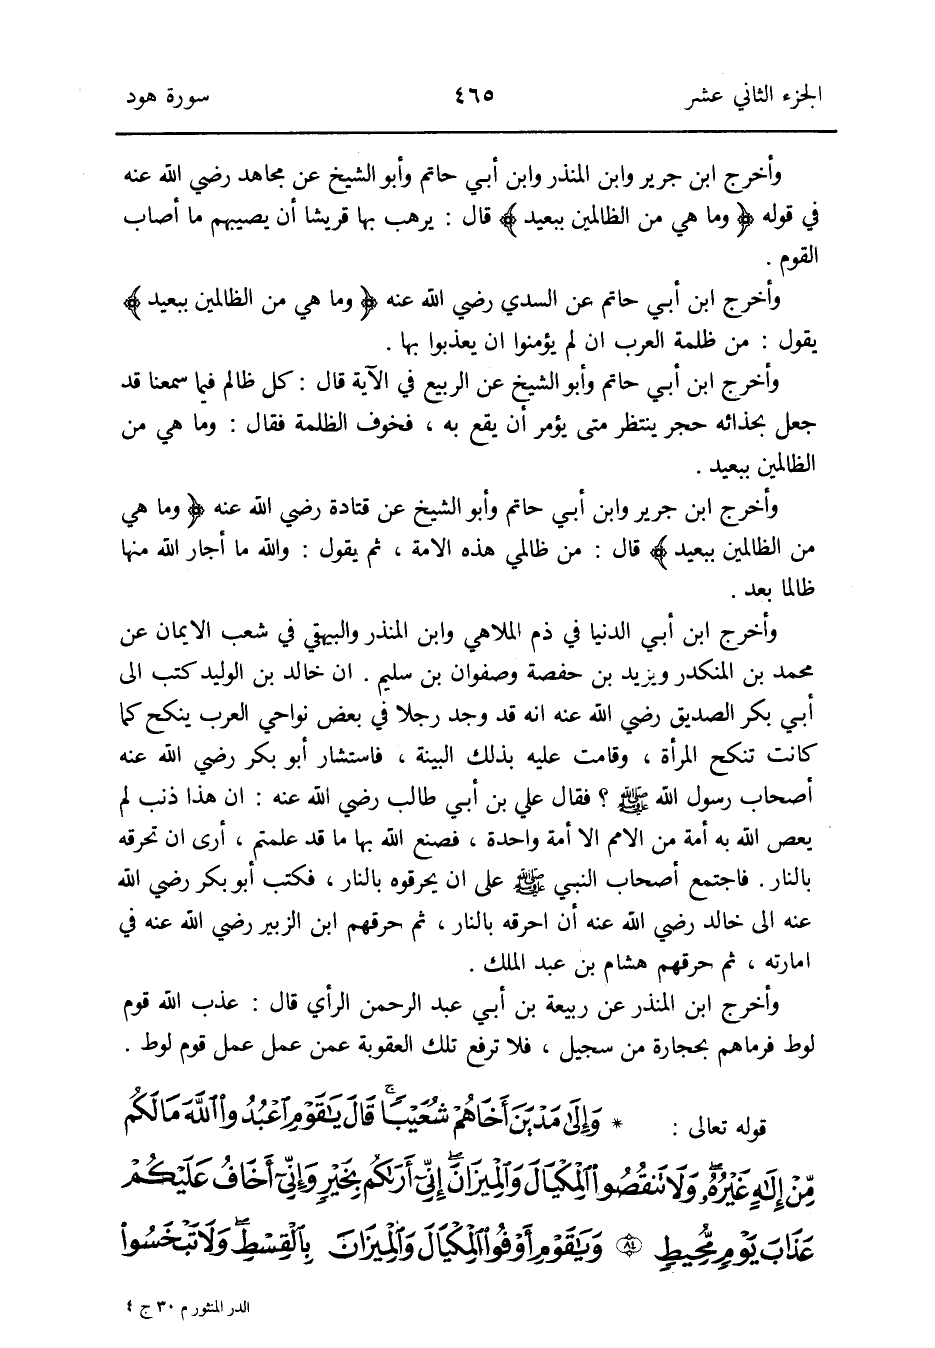 الجزء الثاني عشر ٤٦٥ سورة هود
وأخرج ابن جرير وابن المنذر وابن أبي حاتم وأبو الشيخ عن مجاهد رضي الله عنه
في قوله ﴿ وما هي من الظالمين ببعيد ﴾ قال : يرهب بها قريشا أن يصيبهم ما أصاب
القوم .
وأخرج ابن أبي حاتم عن السدي رضي الله عنه ﴿ وما هي من الظالمين ببعيد ﴾
يقول : من ظلمة العرب ان لم يؤمنوا ان يعذبوا بها .
وأخرج ابن أبي حاتم وأبو الشيخ عن الربيع في الآية قال : كل ظالم فيما سمعنا قد
جعل بحذائه حجر ينتظر متى يؤمر أن يقع به ، فخوف الظلمة فقال : وما هي من
الظالمين ببعيد .
وأخرج ابن جرير وابن أبي حاتم وأبو الشيخ عن قتادة رضي الله عنه ﴿ وما هي
من الظالمين ببعيد ﴾ قال : من ظالمي هذه الامة ، ثم يقول : والله ما أجار الله منها
ظالما بعد .
وأخرج ابن أبي الدنيا في ذم الملاهي وابن المنذر والبيهقي في شعب الايمان عن
محمد بن المنكدر ويزيد بن حفصة وصفوان بن سليم . ان خالد بن الوليد كتب الى
أبي بكر الصديق رضي الله عنه انه قد وجد رجلا في بعض نواحي العرب ينكح كما
كانت تنكح المرأة ، وقامت عليه بذلك البينة ، فاستشار أبو بكر رضي الله عنه
أصحاب رسول الله ﷺ ؟ فقال علي بن أبي طالب رضي الله عنه : ان هذا ذنب لم
يعص الله به أمة من الامم الا أمة واحدة ، فصنع الله بها ما قد علمتم ، أرى ان تحرقه
بالنار . فاجتمع أصحاب النبي ﷺ على ان يحرقوه بالنار ، فكتب أبو بكر رضي الله
عنه الى خالد رضي الله عنه أن احرقه بالنار ، ثم حرقهم ابن الزبير رضي الله عنه في
امارته ، ثم حرقهم هشام بن عبد الملك .
وأخرج ابن المنذر عن ربيعة بن أبي عبد الرحمن الرأي قال : عذب الله قوم
لوط فرماهم بحجارة من سجيل ، فلا ترفع تلك العقوبة عمن عمل عمل قوم لوط .
قوله تعالى : * وَإِلَىٰ مَدْيَنَ أَخَاهُمْ شُعَيْبًا ۚ قَالَ يَٰقَوْمِ ٱعْبُدُوا۟ ٱللَّهَ مَا لَكُم
مِّنْ إِلَٰهٍ غَيْرُهُۥ ۖ وَلَا تَنقُصُوا۟ ٱلْمِكْيَالَ وَٱلْمِيزَانَ ۖ إِنِّىٓ أَرَىٰكُم بِخَيْرٍ وَإِنِّىٓ أَخَافُ عَلَيْكُمْ
عَذَابَ يَوْمٍ مُّحِيطٍ ﴿٨٤﴾ وَيَٰقَوْمِ أَوْفُوا۟ ٱلْمِكْيَالَ وَٱلْمِيزَانَ بِٱلْقِسْطِ ۖ وَلَا تَبْخَسُوا۟
الدر المنثور م ٣٠ ج ٤